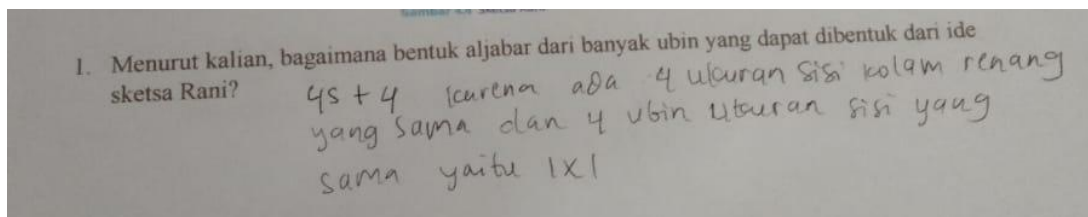 1. Menurut kalian, bagaimana bentuk aljabar dari banyak ubin yang dapat dibentuk dari ide
sketsa Rani?
4s + 4 karena ada 4 ukuran sisi kolam renang
yang sama dan 4 ubin ukuran sisi yang
sama yaitu 1x1